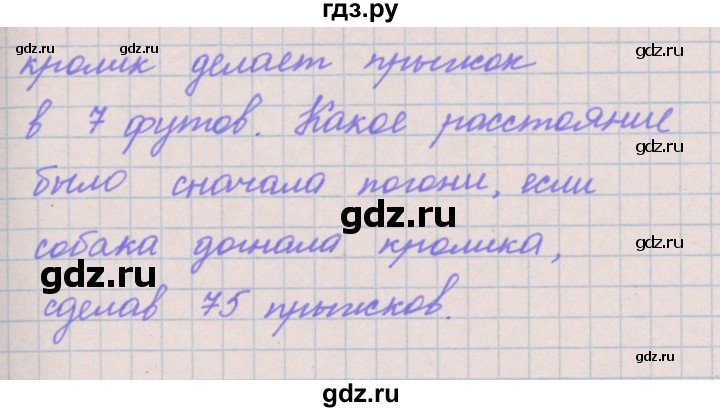 гдз.ру
gdz.ru gdz.ru gdz.ru
кролик делает прыжок
в 7 футов. Какое расстояние
gdz.ru
было сначала погони, если
gdz.ru
собака догнала кролика,
gdz.ru
gdz.ru
сделав 75 прыжков.
gdz.ru
gdz.ru